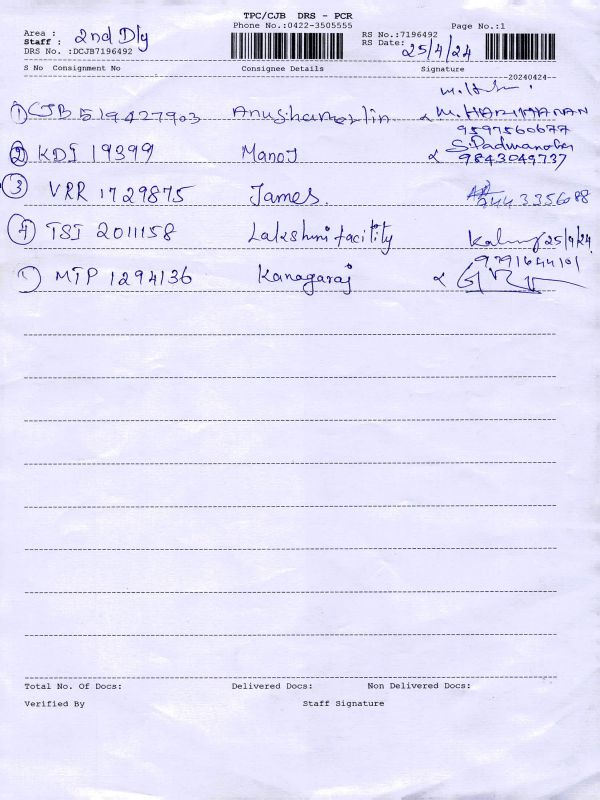 TPC/CJB DRS - PCR
Phone No.:0422-3505555 Page No.:1
Area : 2nd Dly RS No.:7196492
Staff : RS Date: 25/4/24
DRS No. :DCJB7196492
S No Consignment No Consignee Details Signature
20240424
① CJB 519427903 Anushamerlin M. HARIHARAN
9597560677
② KDI 19399 Manoj S. Padmanaban
9843049737
③ VRR 1729875 James. 9443356088
④ TSI 2011158 Lakshmi facility 25/4/24
9791644101
⑤ MTP 1294136 Kanagaraj
Total No. Of Docs: Delivered Docs: Non Delivered Docs:
Verified By Staff Signature